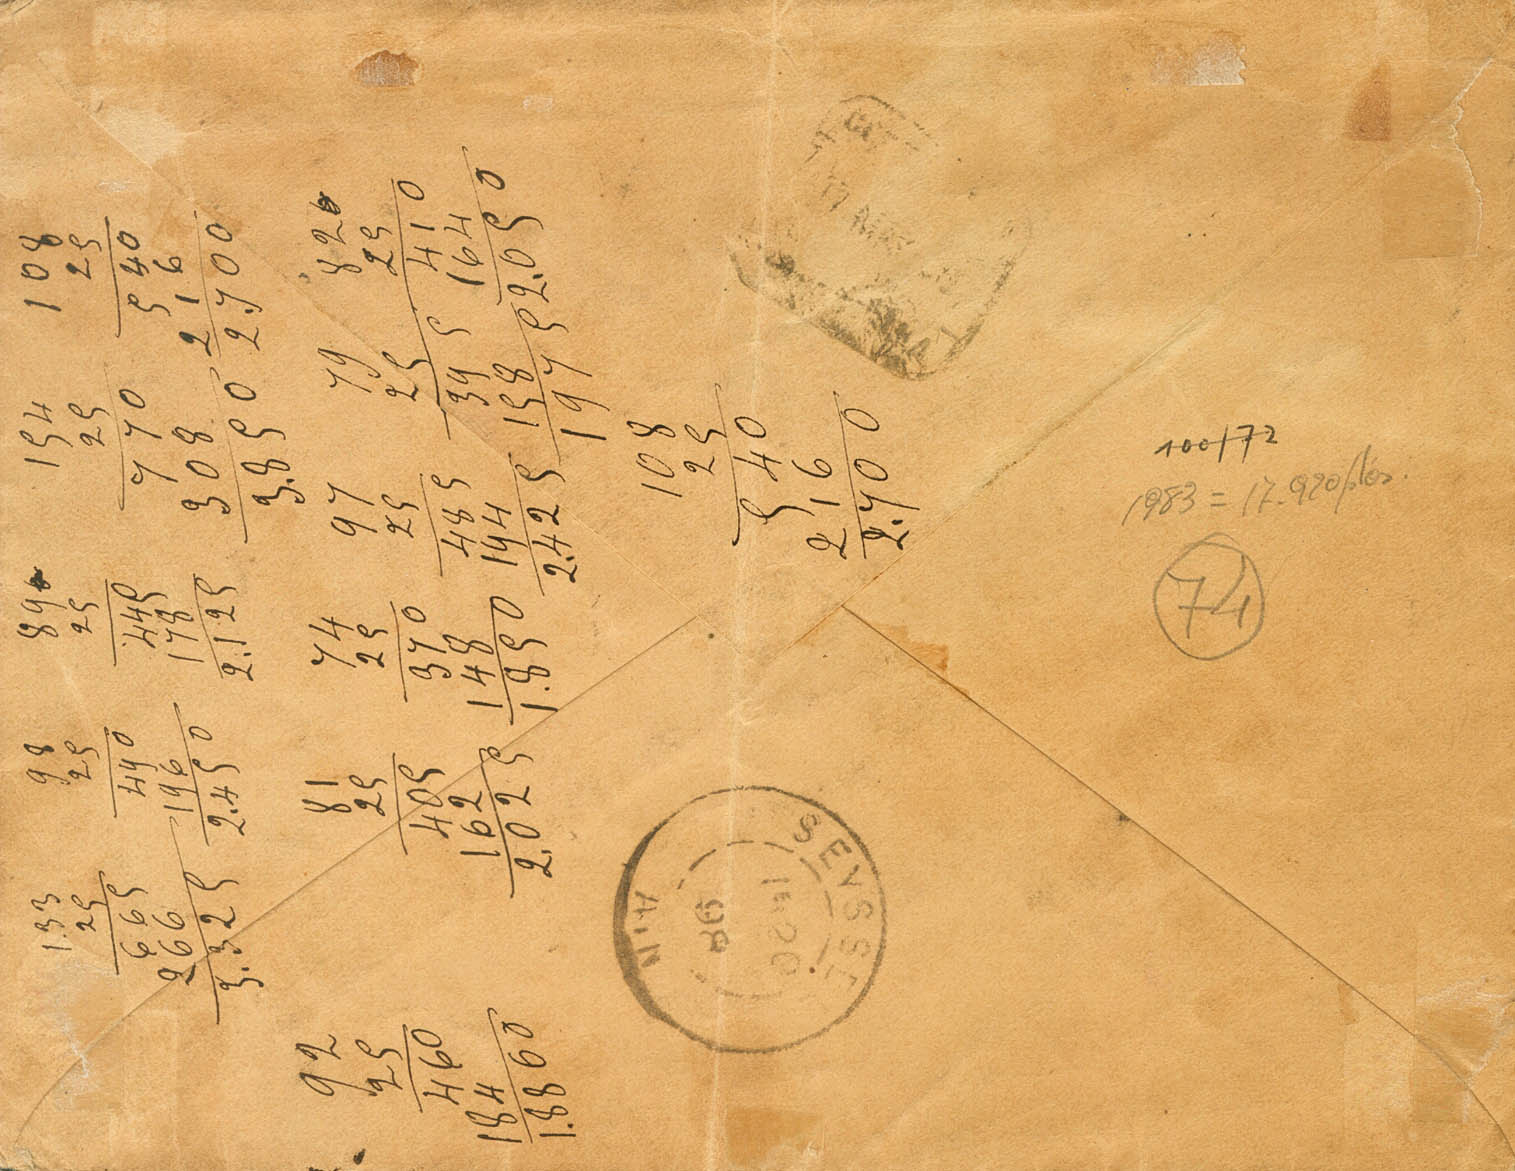 133
25
665
266
3.325
98
25
490
196
2.450
89
25
445
178
2.125
154
25
770
308
3.850
108
25
540
216
2.700
92
25
460
184
1.8860
81
25
405
162
2.025
74
25
370
148
1.850
97
25
485
194
2.425
79
25
395
158
1975
82
25
410
164
2.050
108
25
540
216
2.700
100/72
1983 = 17.920 ptas.
74
SEYSSEL
AIN